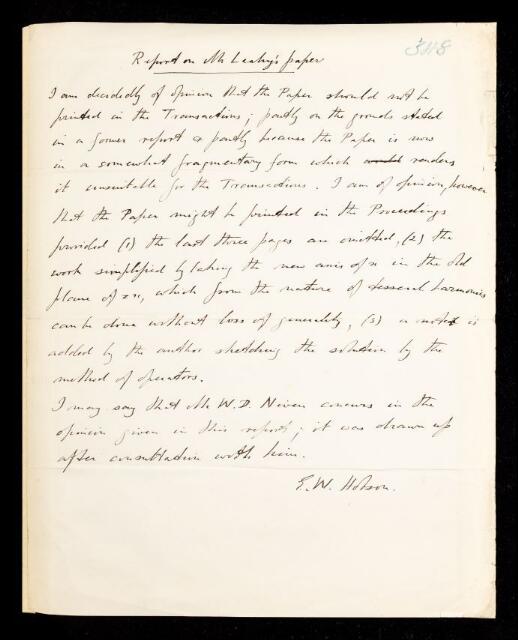 Report on Mr Leahy's paper
I am decidedly of opinion that the Paper should not be
printed in the Transactions; partly on the grounds stated
in a former report & partly because the Paper is now
in a somewhat fragmentary form which renders
it unsuitable for the Transactions. I am of opinion, however
that the Paper might be printed in the Proceedings
provided (1) the last three pages are omitted, (2) the
work simplified by taking the new axis of x in the old
plane of xz, which from the nature of tesseral harmonics
can be done without loss of generality, (3) a note is
added by the author sketching the solution by the
method of operators.
I may say that Mr W.D. Niven concurs in the
opinion given in this report; it was drawn up
after consultation with him.
E. W. Hobson.